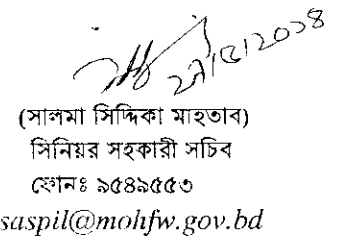 (সালমা সিদ্দিকা মাহতাব)
সিনিয়র সহকারী সচিব
ফোনঃ ৯৫৪৯৫৫৩
saspil@mohfw.gov.bd